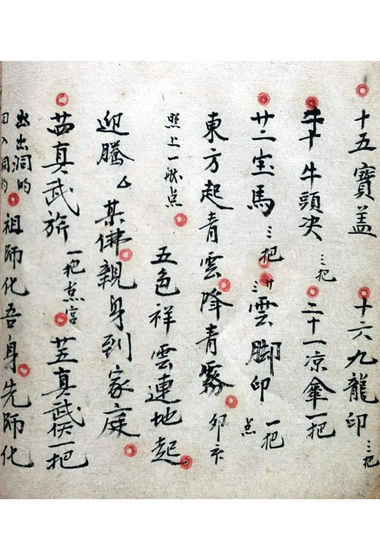 十五寶盖 十六九龍印三把
二十牛頭决三把 二十一凉傘一把
廿二宝馬三把 廿三雲脚印一把点
東方起青雲降青霧卯卞
照上一般点 五色祥雲連地起
迎騰 某佛親身到家庭
廿四真武旂一把点宫 廿五真武伏一把
出出洞的 祖師化吾身先師化